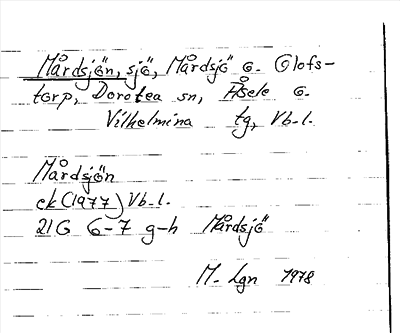 Mårdsjön, sjö, Mårdsjö o. Olofs-
torp, Dorotea sn, Åsele o.
Vilhelmina tg, Vb.l.
Mårdsjön
ek (1977) Vb.l.
21G 6-7 g-h Mårdsjö
M. Lgn 1978